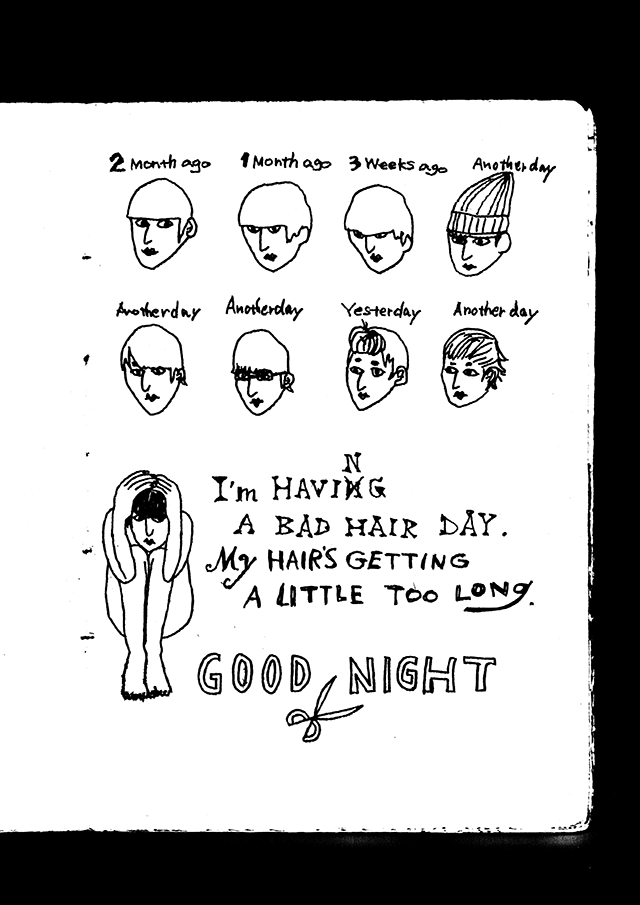 2 Month ago
1 Month ago
3 Weeks ago
Another day
Another day
Another day
Yesterday
Another day
I'm HAVING
A BAD HAIR DAY.
My HAIR'S GETTING
A LITTLE TOO LONG.
GOOD NIGHT